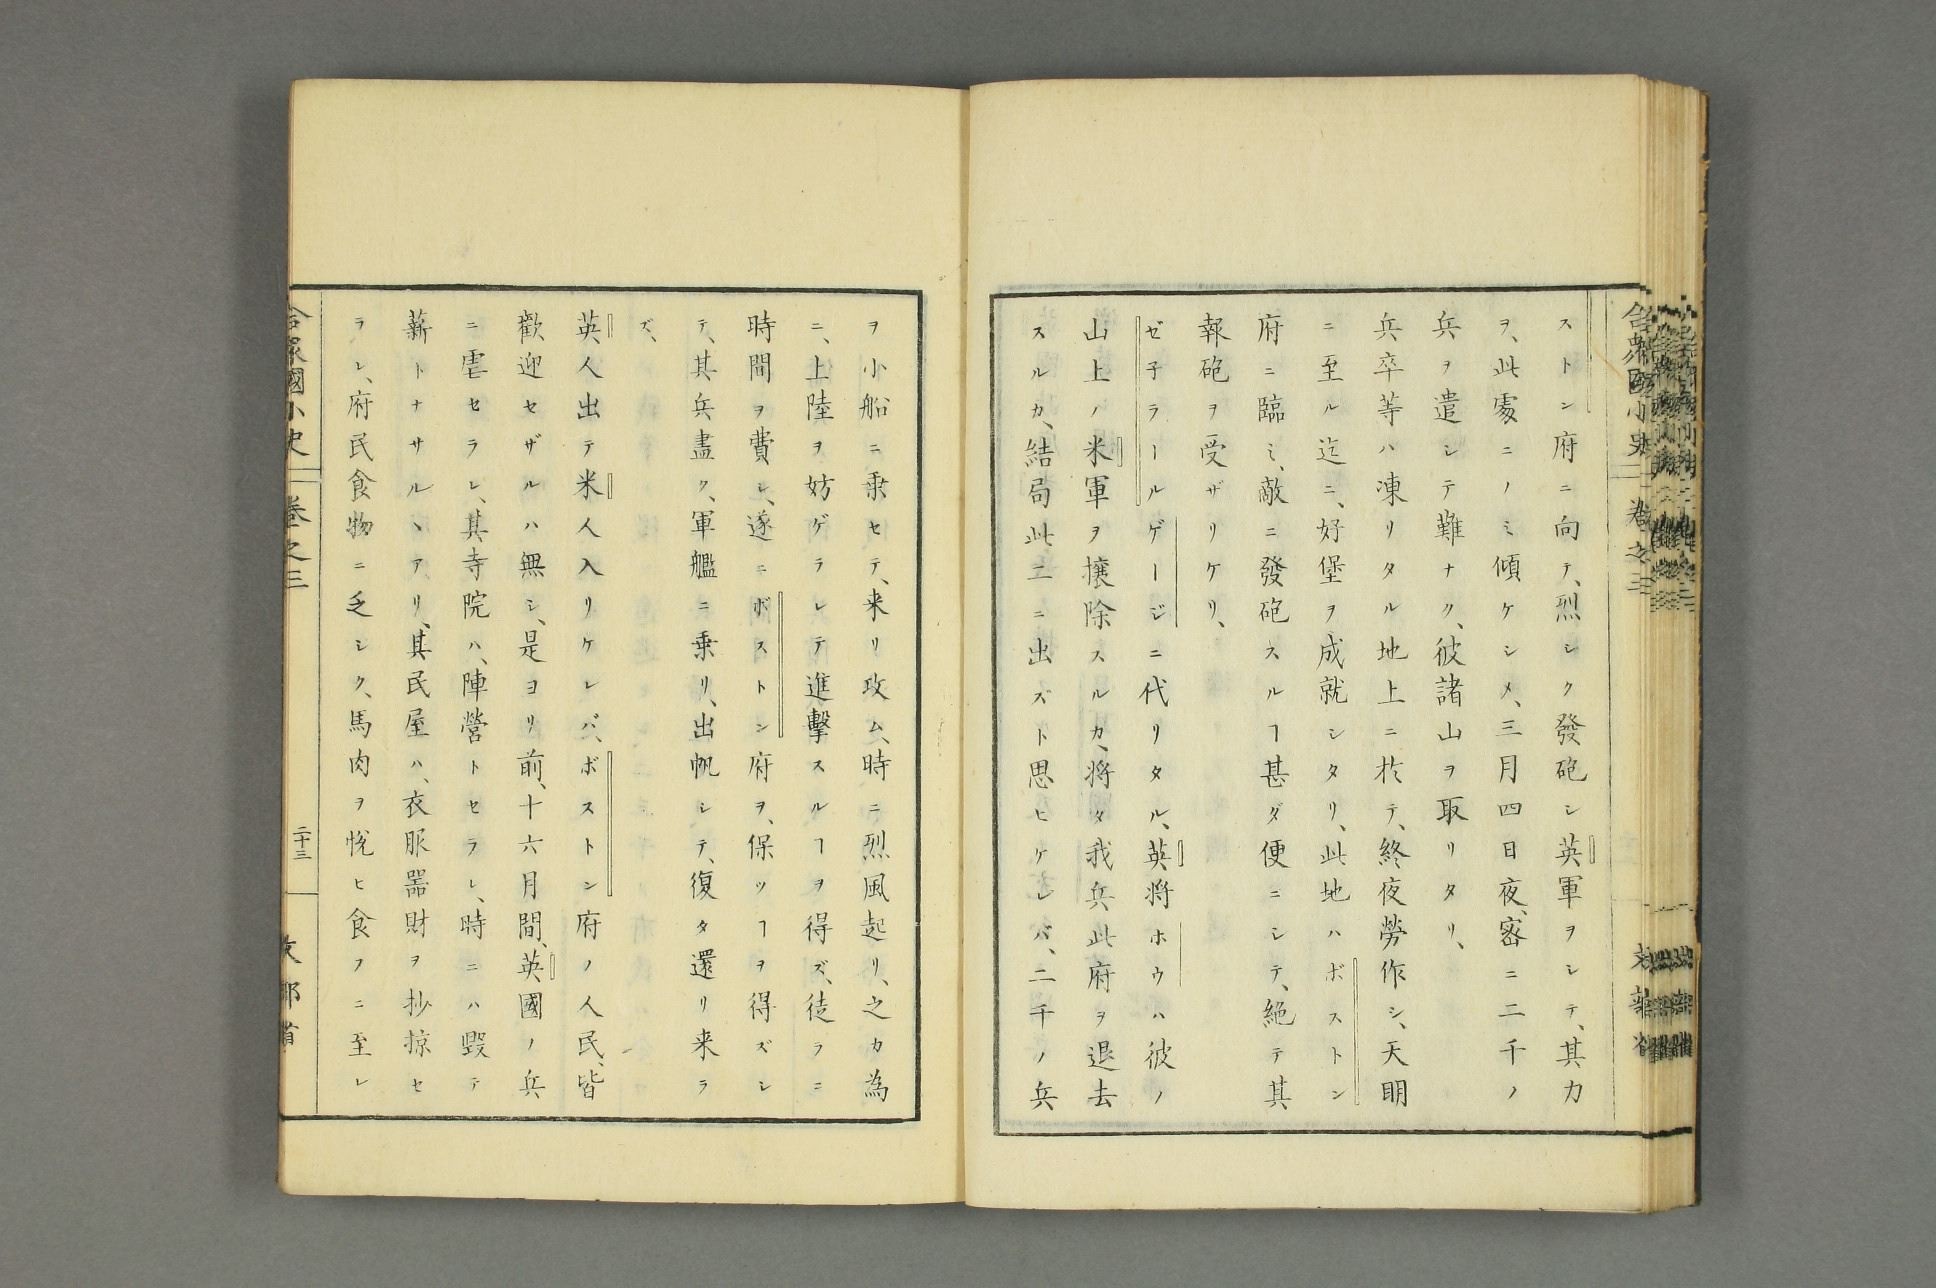 ストン府ニ向テ、烈シク發砲シ英軍ヲシテ、其力
ヲ、此處ニノミ傾ケシメ、三月四日夜、密ニ二千ノ
兵ヲ遣シテ難ナク、彼諸山ヲ取リタリ、
兵卒等ハ凍リタル地上ニ於テ、終夜勞作シ、天明
ニ至ル迄ニ、好堡ヲ成就シタリ、此地ハボストン
府ニ臨ミ、敵ニ發砲スルヿ甚ダ便ニシテ、絶テ其
報砲ヲ受ザリケリ、
ゼ子ラールゲージニ代リタル、英將ホウハ彼ノ
山上ノ米軍ヲ攘除スルカ、將タ我兵此府ヲ退去
スルカ、結局此二ニ出ズト思ヒケレバ、二千ノ兵
ヲ小船ニ乗セテ、来リ攻ム、時ニ烈風起リ、之カ為
ニ、上陸ヲ妨ゲラレテ進擊スルヿヲ得ズ、徒ラニ
時間ヲ費シ、遂ニボストン府ヲ、保ツヿヲ得ズシ
テ、其兵盡ク、軍艦ニ乗リ、出帆シテ、復タ還リ来ラ
ズ、
英人出テ米人入リケレバ、ボストン府ノ人民、皆
歡迎セザルハ無シ、是ヨリ前、十六月間、英國ノ兵
ニ虐セラレ、其寺院ハ、陣營トセラレ、時ニハ毀テ
薪トナサルヽアリ、其民屋ハ、衣服噐財ヲ抄掠セ
ラレ、府民食物ニ乏シク、馬肉ヲ悅ヒ食フニ至レ
合衆國小史 卷之三 二十三 文部省